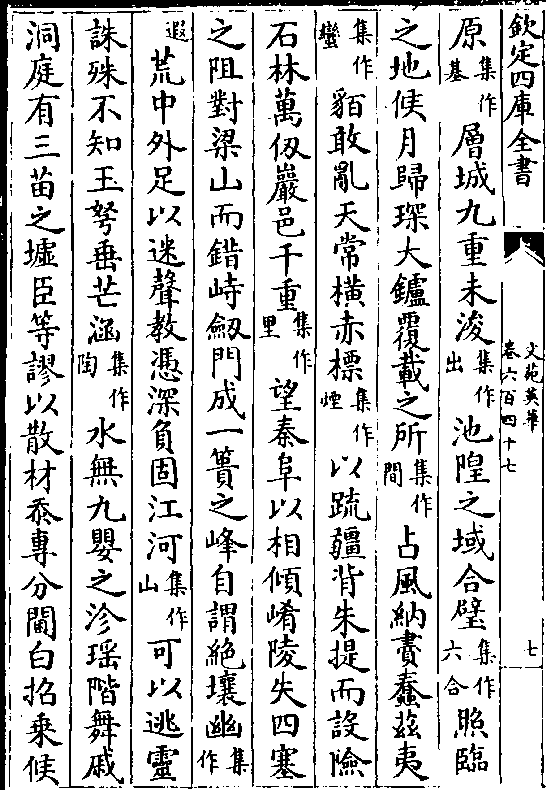 欽定四庫全書
文苑英華
卷六百四十七
七
原集作基層城九重未浚集作出池隍之域合璧集作六合照臨
之地候月歸琛大鑪覆載之所集作間占風納賮蠢茲夷
集作蠻貊敢亂天常橫赤標集作煙以疏疆背朱提而設險
石林萬仭巖邑千重集作里望秦阜以相傾崤陵失四塞
之阻對梁山而錯峙劒門成一簣之峰自謂絶壤幽集作
遐荒中外足以迷聲教憑深負固江河集作山可以逃靈
誅殊不知玉弩垂芒涵集作陶水無九嬰之沴瑶階舞戚
洞庭有三苗之墟臣等謬以散材忝專分閫白招乗候